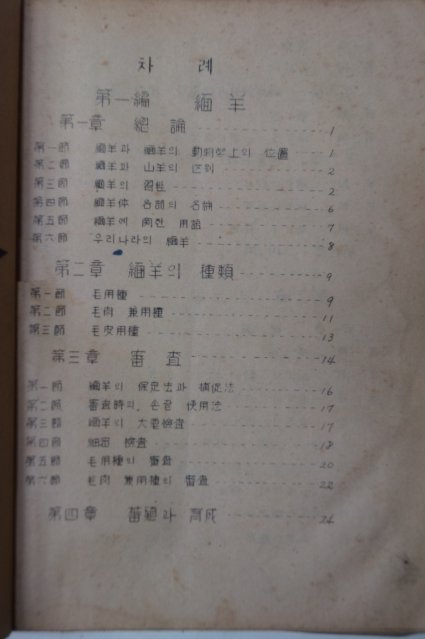 차 례
第一編 緬羊
第一章 總論 1
第一節 緬羊과 緬羊의 動物学上의 位置 1
第二節 緬羊과 山羊의 区別 2
第三節 緬羊의 習性 2
第四節 緬羊体 各部의 名稱 6
第五節 緬羊에 関한 用語 7
第六節 우리나라의 緬羊 8
第二章 緬羊의 種類 9
第一節 毛用種 9
第二節 毛肉 兼用種 11
第三節 毛皮用種 13
第三章 審査 14
第一節 緬羊의 保定法과 捕捉法 16
第二節 審査時의 손끝 使用法 17
第三節 緬羊의 検査 17
第四節 細密 検査 18
第五節 毛用種의 審査 20
第六節 毛肉 兼用種의 審査 22
第四章 蕃殖과 育成 24